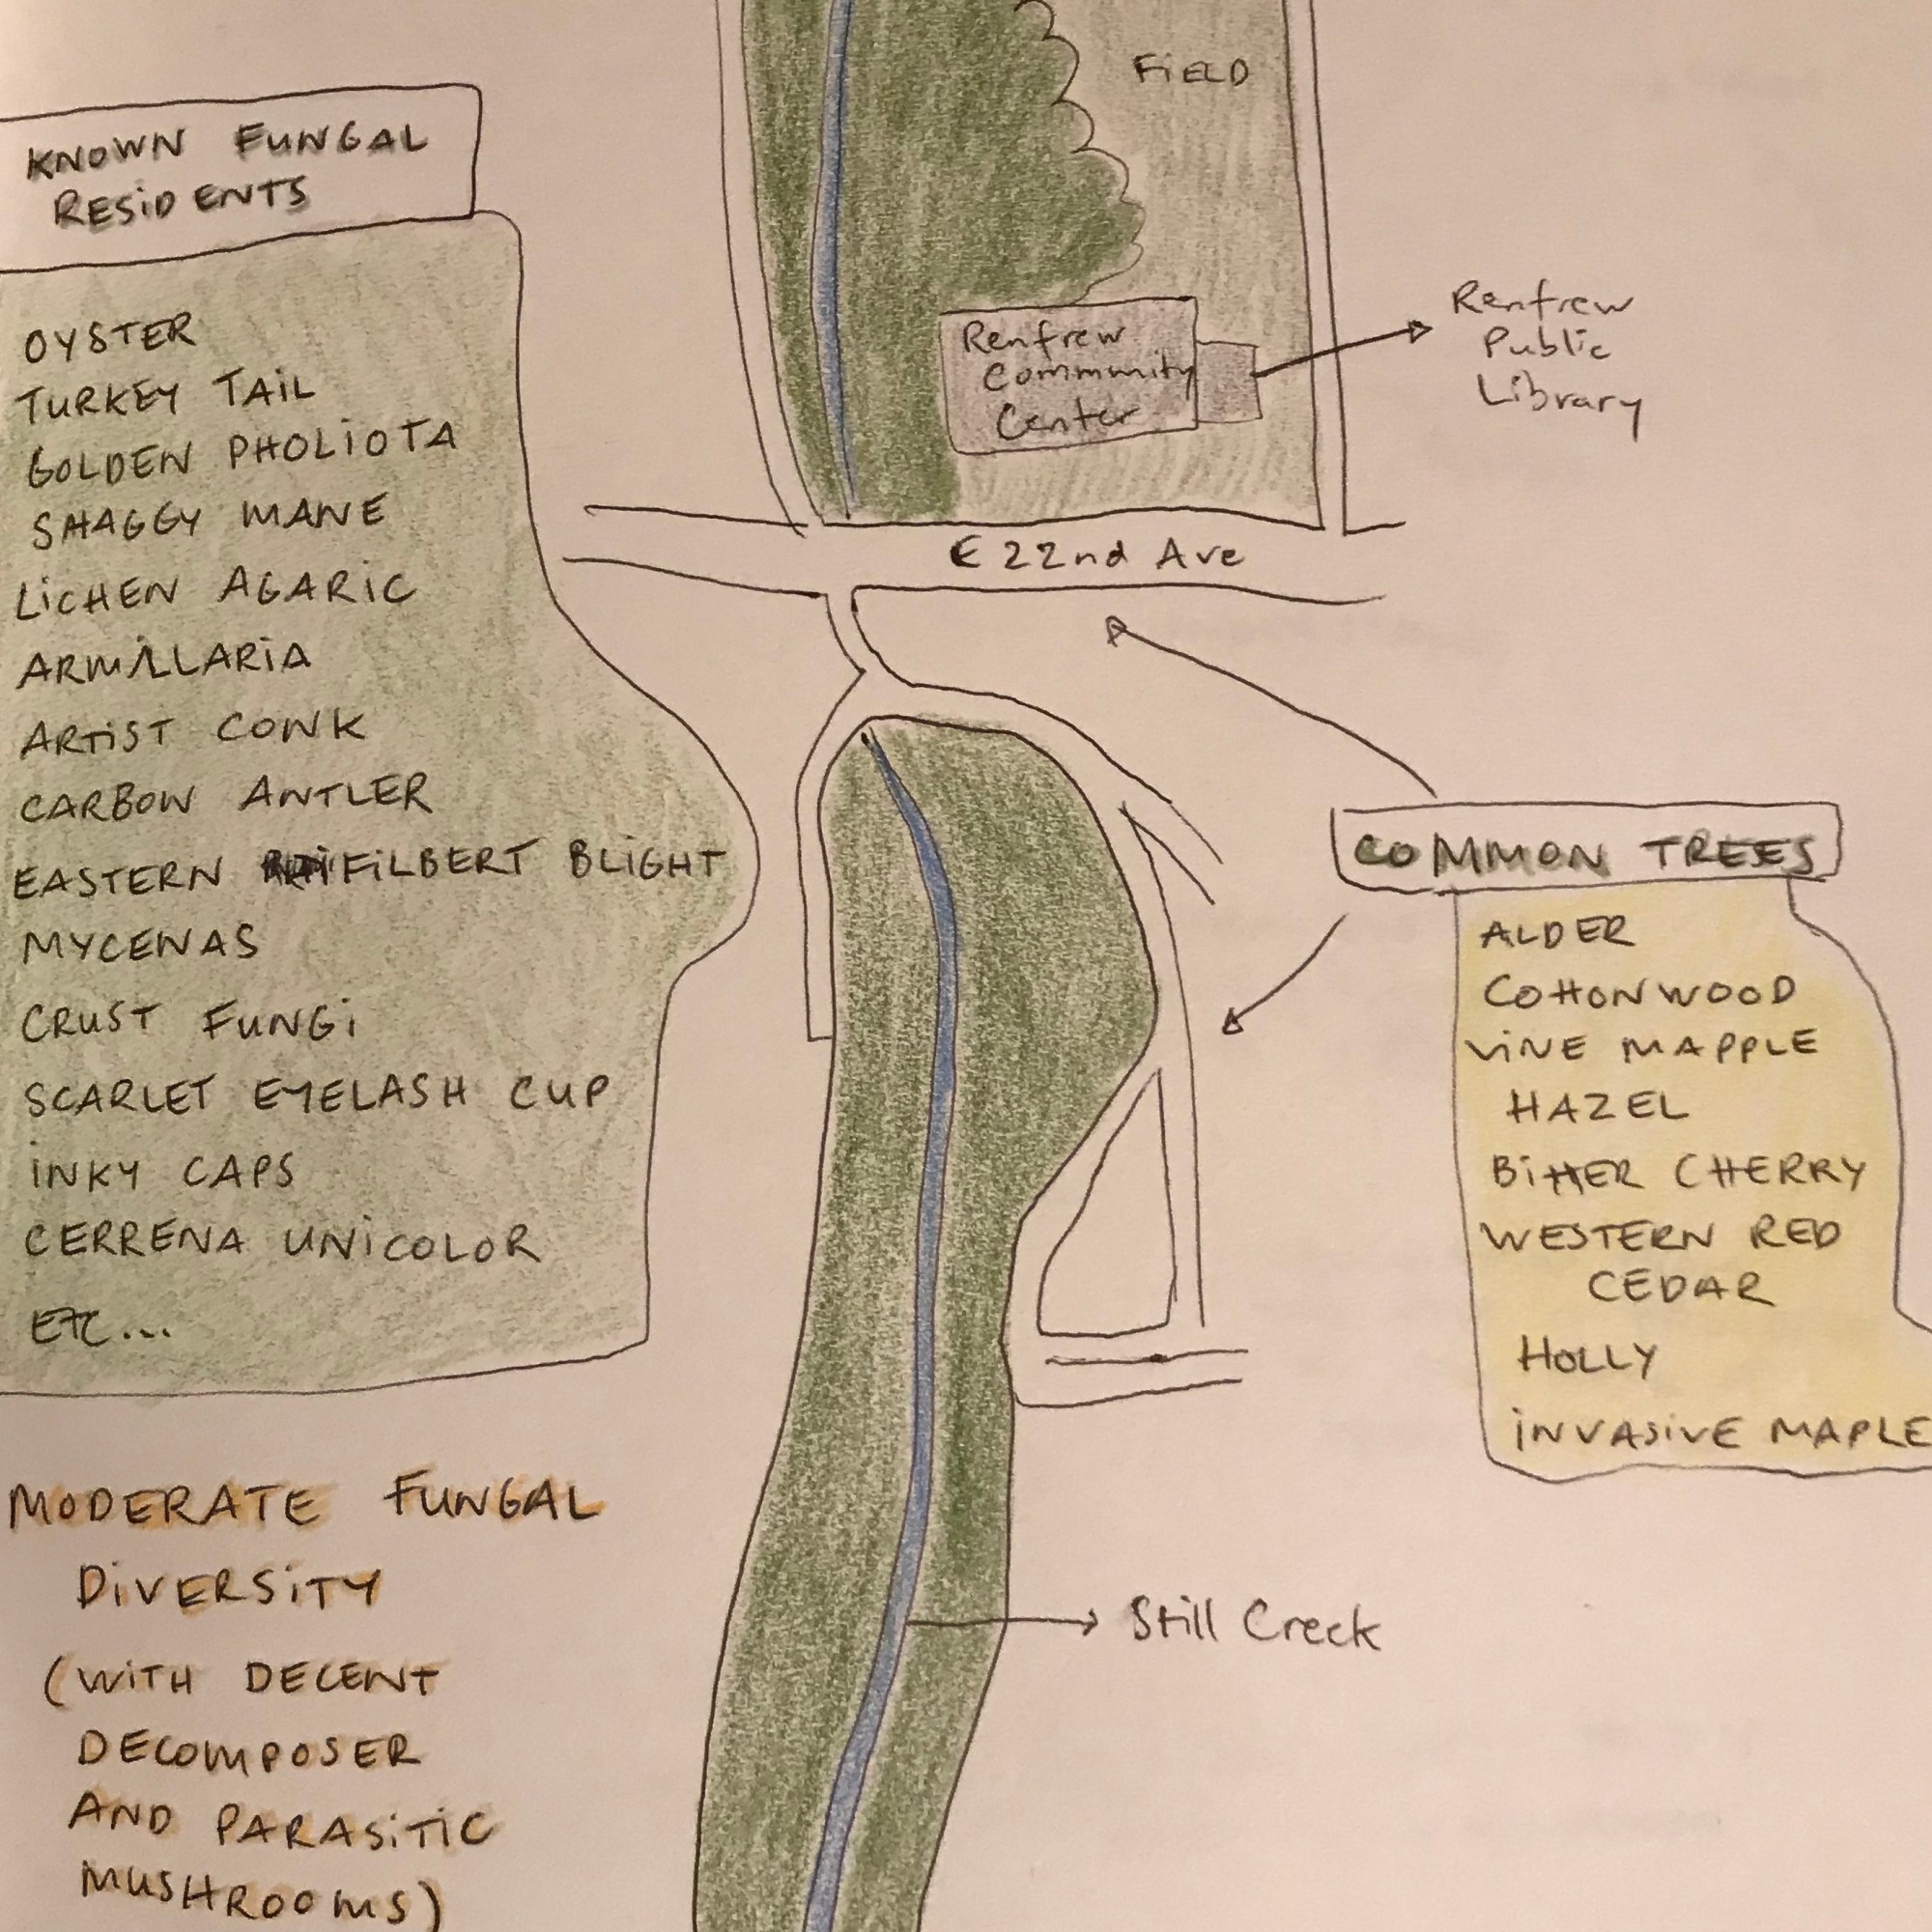 KNOWN FUNGAL
RESIDENTS
OYSTER
TURKEY TAIL
GOLDEN PHOLIOTA
SHAGGY MANE
LICHEN AGARIC
ARMILLARIA
ARTIST CONK
CARBON ANTLER
EASTERN FILBERT BLIGHT
MYCENAS
CRUST FUNGI
SCARLET EYELASH CUP
INKY CAPS
CERRENA UNICOLOR
ETC...
MODERATE FUNGAL
DIVERSITY
(WITH DECENT
DECOMPOSER
AND PARASITIC
MUSHROOMS)
FIELD
Renfrew
Community
Center
Renfrew
Public
Library
E 22nd Ave
COMMON TREES
ALDER
COTTONWOOD
VINE MAPPLE
HAZEL
BITTER CHERRY
WESTERN RED
CEDAR
HOLLY
INVASIVE MAPLE
Still Creek